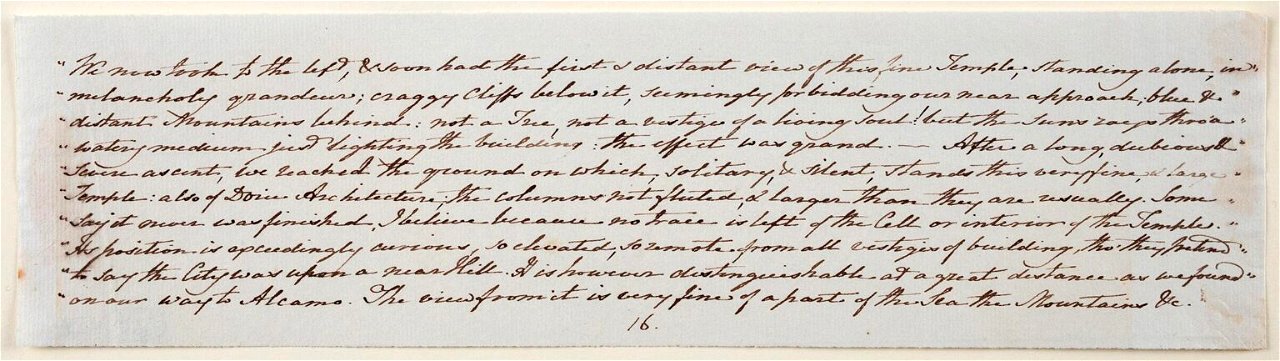 " We now took to the left, & soon had the first & distant view of this fine Temple, standing alone, in "
" melancholy grandeur; craggy Cliffs below it, seemingly forbidding our near approach; blue & "
" distant Mountains behind: not a Tree, not a vestige of a living Soul! but the Suns rays thro' a "
" watery medium just lighting the building: the effect was grand. — After a long, dubious &
" Severe ascent, we reached the ground on which, Solitary, & Silent, stands this very fine, & large "
" Temple: also of Doric Architecture, the columns not fluted, & larger than they are usually. Some "
" say it never was finished, I believe because no trace is left of the Cell or interior of the Temple. "
" Its position is exceedingly curious, so elevated, so remote from all vestiges of building, tho' they pretend "
" to say the City was upon a near Hill. It is however distinguishable at a great distance as we found "
" on our way to Alcamo. The view from it is very fine of a part of the Sea the Mountains &c. "
16.